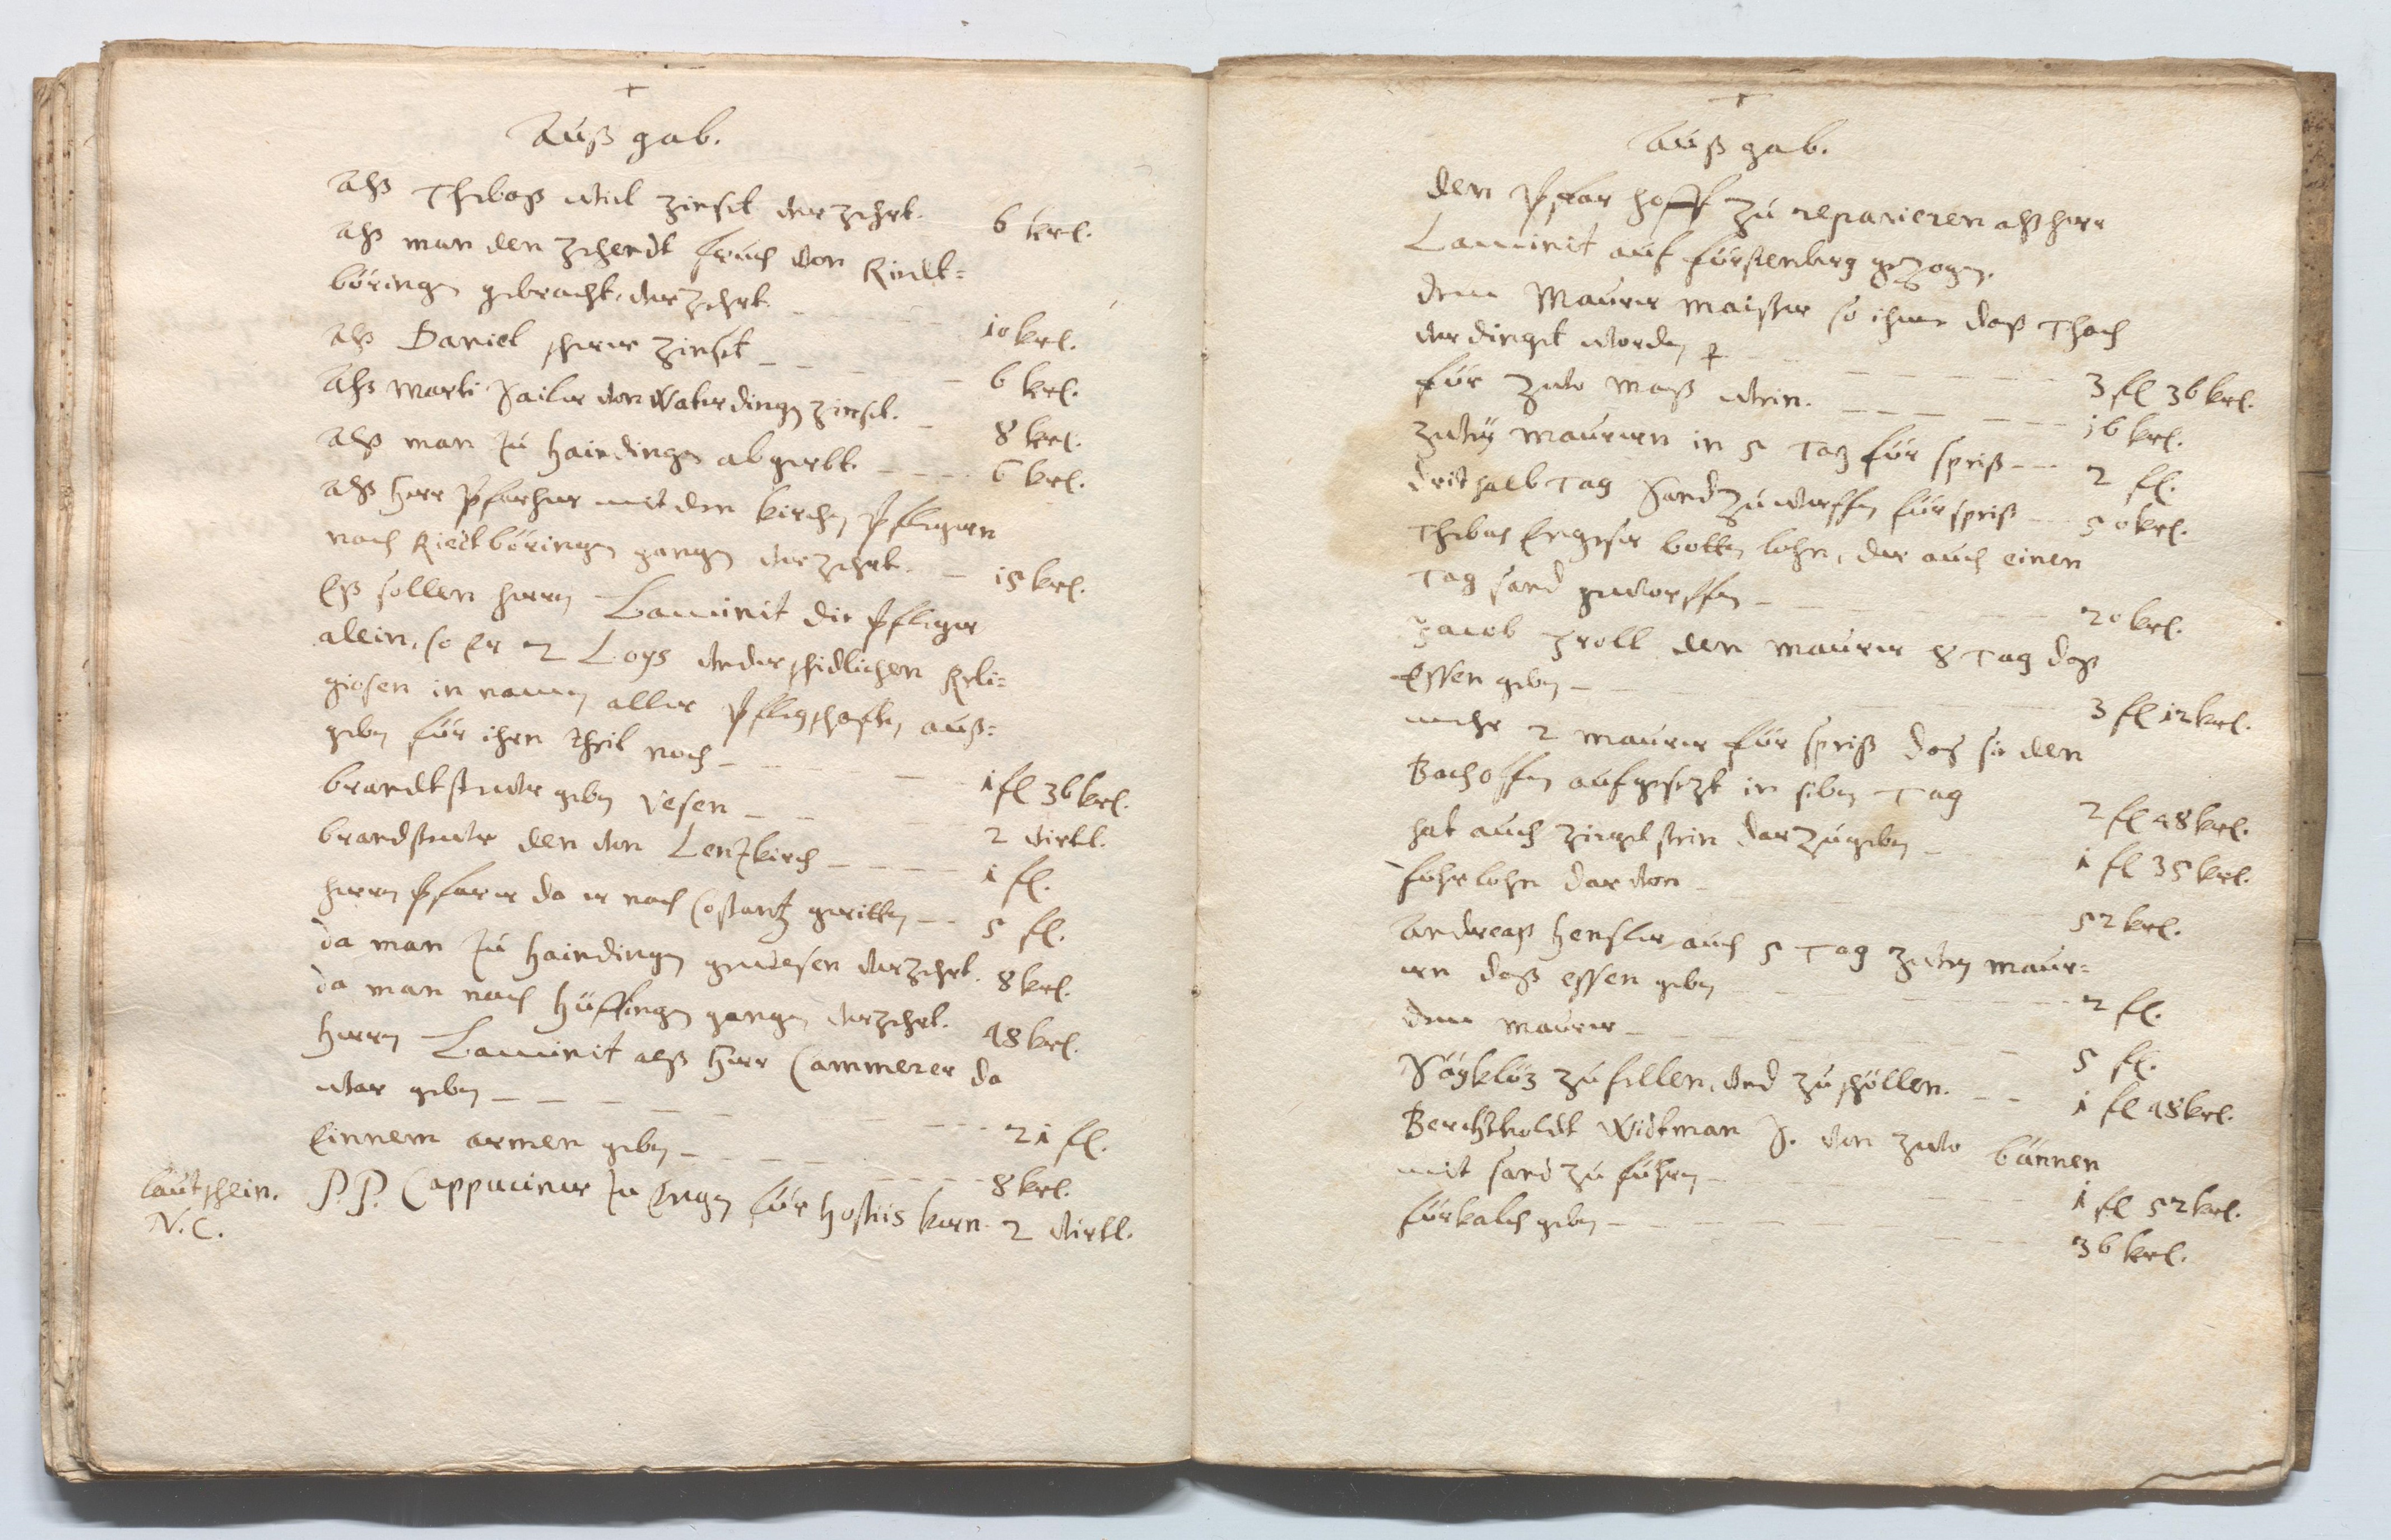 +
Auß gab.
Alß Thebaß weil zinset verzehrt. 6 krl.
Alß man den zehendt fruch von Riedt=
böringen gebracht, verzehrt 10 krl.
Alß Daniel scherer zinset 6 krl.
Alß Marti Sailer von Waterdingen zinset. 8 krl.
Alß man zu haindingen abgerett 6 krl.
Alß herr Pfarherr mit den kirchen Pflegern
nach Riedtböringen gangen verzehrt. 15 krl.
Eß sollen herrn Laminit die Pfleger
allein, so Er 2 Loys underschidlichen Reli=
giosen in namen aller Pflegschafften auß=
geben für ihren theil noch 1 fl 36 krl.
brandtsteuer geben vesen 2 viertl.
brandsteuer den von Lentzkirch 1 fl.
herrn Pfarer da er nach Costantz geritten 5 fl.
da man zu haindingen gewesen verzehrt. 8 krl.
da man nach hüffingen gangen verzehrt. 48 krl.
herrn Laminit alß herr Cammerer da
war geben 21 fl.
Einnem armen geben 8 krl.
laut schein. P. P. Cappuciner zu Engen für hostiis kern. 2 viertl.
N. C.
+
Auß gab.
den Pfar hoff zu reparieren alß herr
Laminit auf fürstenberg gezogen.
dem Maurer maister so ihme daß Thach
verdinget worden 3 fl 36 krl.
für zwo maß wein. 16 krl.
zwey maurern in 5 Tag für speiß 2 fl.
drithalb Tag Sand zu werffen für speiß 50 krl.
Thebus Engesser botten lohn, der auch einen
Tag sand geworffen 20 krl.
Jacob Troll den maurer 8 Tag daß
Essen geben 3 fl 12 krl.
mehr 2 maurer für speiß daß sie den
Bachoffen aufgesetzt in siben Tag 2 fl 48 krl.
hat auch ziegelstein darzu geben 1 fl 35 krl.
fuhrlohn darvon 52 krl.
Andreaß Hensler auch 5 Tag zwey maur=
ern daß essen geben 2 fl.
dem maurer 5 fl.
Sägklötz zu fellen, und zu schöllen. 1 fl 48 krl.
Berchtholdt Widtman J. von zwo bännen
mit sand zu führen 1 fl 52 krl.
für kalch geben 36 krl.